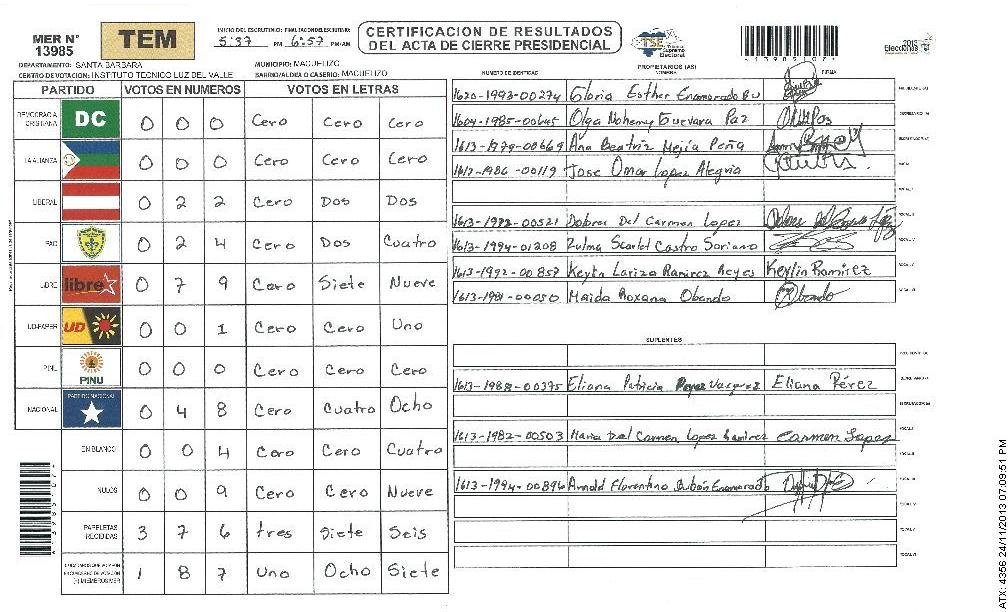 MER N° 13985
TEM
INICIO DEL ESCRUTINIO: FINALIZACION DEL ESCRUTINIO:
5:37 PM 6:57 PM/AM
CERTIFICACION DE RESULTADOS
DEL ACTA DE CIERRE PRESIDENCIAL
TSE Tribunal Supremo Electoral
2013 Elecciones
* 1 3 9 8 5 0 7 *
DEPARTAMENTO: SANTA BARBARA MUNICIPIO: MACUELIZO
CENTRO DE VOTACION: INSTITUTO TECNICO LUZ DEL VALLE BARRIO/ALDEA O CASERIO: MACUELIZO
PARTIDO VOTOS EN NUMEROS VOTOS EN LETRAS
DEMOCRACIA CRISTIANA DC 0 0 0 Cero Cero Cero
LA ALIANZA 0 0 0 Cero Cero Cero
LIBERAL 0 2 2 Cero Dos Dos
PAC 0 2 4 Cero Dos Cuatro
LIBRE libre 0 7 9 Cero Siete Nueve
UD-FAPER UD 0 0 1 Cero Cero Uno
PINU PINU 0 0 0 Cero Cero Cero
NACIONAL PARTIDO NACIONAL 0 4 8 Cero Cuatro Ocho
EN BLANCO 0 0 4 Cero Cero Cuatro
NULOS 0 0 9 Cero Cero Nueve
PAPELETAS RECIBIDAS 3 7 6 tres Siete Seis
(+) MIEMBROS MER 1 8 7 Uno Ocho Siete
PROPIETARIOS (AS)
NUMERO DE IDENTIDAD NOMBRE FIRMA
1620-1993-00274 Gloria Esther Enamorado Bu
1604-1985-00645 Olga Nohemy Guevara Paz
1613-1979-00669 Ana Beatriz Mejía Peña
1612-1986-00119 Jose Omar Lopez Alegria
1613-1973-00521 Dolores Del Carmen Lopez
1613-1994-01208 Zulma Scarlet Castro Soriano
1613-1992-00857 Keylin Lariza Ramirez Reyes Keylin Ramirez
1613-1981-00050 Maida Roxana Obando Obando
SUPLENTES
1613-1988-00375 Eliana Patricia Perez Vasquez Eliana Pérez
1613-1982-00503 Maria Del Carmen Lopez Ramirez Carmen Lopez
1613-1994-00896 Arnold Florentino Dubón Enamorado
ATX: 4356 24/11/2013 07:09:51 PM